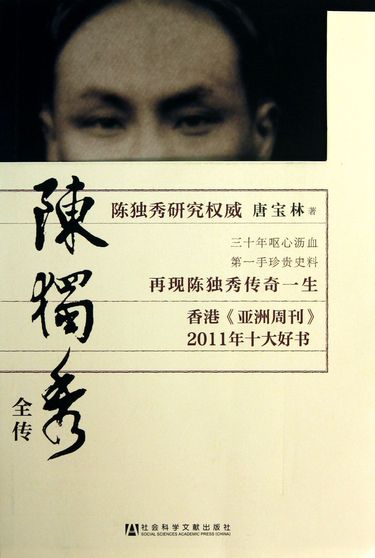 陳獨秀
全传
陈独秀研究权威 唐宝林 著
三十年呕心沥血
第一手珍贵史料
再现陈独秀传奇一生
香港《亚洲周刊》
2011年十大好书
社会科学文献出版社
SOCIAL SCIENCES ACADEMIC PRESS (CHINA)